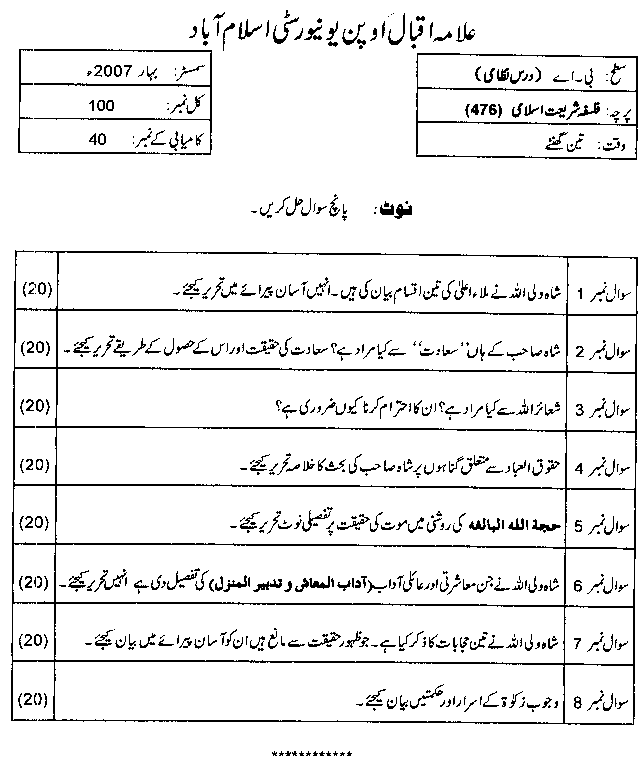 علامہ اقبال اوپن یونیورسٹی اسلام آباد
سطح: بی۔اے (درس نظامی)
پرچہ: فلسفہ شریعت اسلامی (476)
وقت: تین گھنٹے
سمسٹر: بہار 2007ء
کل نمبر: 100
کامیابی کے نمبر: 40
نوٹ: پانچ سوال حل کریں۔
سوال نمبر 1 شاہ ولی اللہ نے ملاء اعلیٰ کی تین اقسام بیان کی ہیں۔ انہیں آسان پیرائے میں تحریر کیجئے۔ (20)
سوال نمبر 2 شاہ صاحب کے ہاں ''سعادت'' سے کیا مراد ہے؟ سعادت کی حقیقت اور اس کے حصول کے طریقے تحریر کیجئے۔ (20)
سوال نمبر 3 شعائر اللہ سے کیا مراد ہے؟ ان کا احترام کرنا کیوں ضروری ہے؟ (20)
سوال نمبر 4 حقوق العباد سے متعلق گناہوں پر شاہ صاحب کی بحث کا خلاصہ تحریر کیجئے۔ (20)
سوال نمبر 5 حجة الله البالغه کی روشنی میں موت کی حقیقت پر تفصیلی نوٹ تحریر کیجئے۔ (20)
سوال نمبر 6 شاہ ولی اللہ نے جن معاشرتی اور عائلی آداب (آداب المعاش و تدبير المنزل) کی تفصیل دی ہے انہیں تحریر کیجئے۔ (20)
سوال نمبر 7 شاہ ولی اللہ نے تین حجابات کا ذکر کیا ہے۔ جو ظہور حقیقت سے مانع ہیں ان کو آسان پیرائے میں بیان کیجئے۔ (20)
سوال نمبر 8 وجوب زکوٰۃ کے اسرار اور حکمتیں بیان کیجئے۔ (20)
************